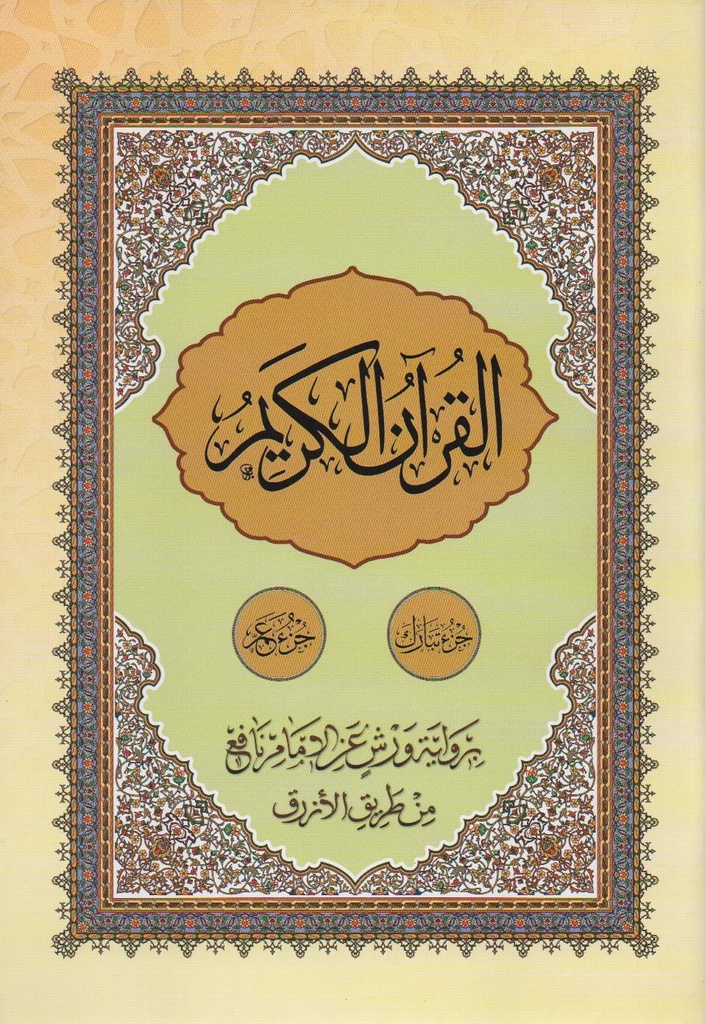 القُرآنُ الكَرِيمُ
جُزْء تَبَارَكَ
جُزْءُ عَمَّ
بِرِوَايَة وَرْشٍ عَنِ الإمَامِ نَافِع
مِنْ طَرِيقِ الأَزرق